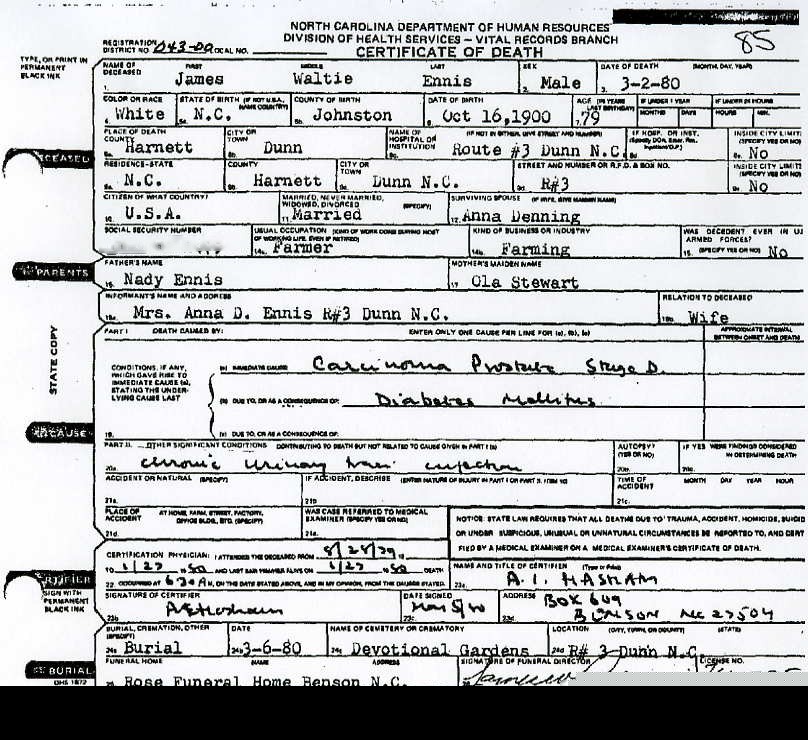 NORTH CAROLINA DEPARTMENT OF HUMAN RESOURCES
DIVISION OF HEALTH SERVICES - VITAL RECORDS BRANCH
CERTIFICATE OF DEATH
85
TYPE, OR PRINT IN PERMANENT BLACK INK
REGISTRATION DISTRICT NO. 043-00 LOCAL NO.
NAME OF DECEASED FIRST MIDDLE LAST SEX DATE OF DEATH (MONTH, DAY, YEAR)
1. James Waltie Ennis 2. Male 3. 3-2-80
COLOR OR RACE STATE OF BIRTH (IF NOT U.S.A., NAME COUNTRY) COUNTY OF BIRTH DATE OF BIRTH AGE (IN YEARS LAST BIRTHDAY) IF UNDER 1 YEAR IF UNDER 24 HOURS
4. White 5a. N.C. 5b. Johnston 6. Oct 16,1900 7. 79 MONTHS DAYS HOURS MIN.
PLACE OF DEATH COUNTY CITY OR TOWN NAME OF HOSPITAL OR INSTITUTION (IF NOT IN EITHER, GIVE STREET AND NUMBER) IF HOSP. OR INST. INSIDE CITY LIMIT
8a. Harnett Dunn Route #3 Dunn N.C. 8d. 8e. No
DECEASED
RESIDENCE-STATE COUNTY CITY OR TOWN STREET AND NUMBER OR R.F.D. & BOX NO. INSIDE CITY LIMITS
9a. N.C. 9b. Harnett 9c. Dunn N.C. 9d. R#3 9e. No
CITIZEN OF WHAT COUNTRY? MARRIED, NEVER MARRIED, WIDOWED, DIVORCED (SPECIFY) SURVIVING SPOUSE (IF WIFE, GIVE MAIDEN NAME)
10. U.S.A. 11. Married 12. Anna Denning
SOCIAL SECURITY NUMBER USUAL OCCUPATION (KIND OF WORK DONE DURING MOST OF WORKING LIFE, EVEN IF RETIRED) KIND OF BUSINESS OR INDUSTRY WAS DECEDENT EVER IN U ARMED FORCES?
14a. Farmer 14b. Farming 15. (SPECIFY YES OR NO) No
PARENTS
FATHER'S NAME MOTHER'S MAIDEN NAME
16. Nady Ennis 17. Ola Stewart
INFORMANT'S NAME AND ADDRESS RELATION TO DECEASED
18a. Mrs. Anna D. Ennis R#3 Dunn N.C. 18b. Wife
STATE COPY
PART I DEATH CAUSED BY: ENTER ONLY ONE CAUSE PER LINE FOR (a), (b), (c) APPROXIMATE INTERVAL BETWEEN ONSET AND DEATH
CONDITIONS, IF ANY, WHICH GAVE RISE TO IMMEDIATE CAUSE (a), STATING THE UNDERLYING CAUSE LAST
(a) IMMEDIATE CAUSE Carcinoma Prostate Stage D.
(b) DUE TO, OR AS A CONSEQUENCE OF: Diabetes Mellitus
19. (c) DUE TO, OR AS A CONSEQUENCE OF:
CAUSE
PART II. OTHER SIGNIFICANT CONDITIONS CONTRIBUTING TO DEATH BUT NOT RELATED TO CAUSE GIVEN IN PART I (a) AUTOPSY? (YES OR NO) IF YES WERE FINDINGS CONSIDERED IN DETERMINING DEATH
20a. Chronic Urinary infection 20b. 20c.
ACCIDENT OR NATURAL (SPECIFY) IF ACCIDENT, DESCRIBE (ENTER NATURE OF INJURY IN PART I OR PART II, ITEM 19) TIME OF ACCIDENT MONTH DAY YEAR HOUR
21a. 21b 21c.
PLACE OF ACCIDENT AT HOME, FARM, STREET, FACTORY, OFFICE BLDG., ETC. (SPECIFY) WAS CASE REFERRED TO MEDICAL EXAMINER (SPECIFY YES OR NO)
21d. 21e.
NOTICE: STATE LAW REQUIRES THAT ALL DEATHS DUE TO TRAUMA, ACCIDENT, HOMICIDE, SUICID
OR UNDER SUSPICIOUS, UNUSUAL OR UNNATURAL CIRCUMSTANCES BE REPORTED TO, AND CERT
FIED BY A MEDICAL EXAMINER ON A MEDICAL EXAMINER'S CERTIFICATE OF DEATH.
CERTIFICATION PHYSICIAN: I ATTENDED THE DECEASED FROM 8/28/79
TO 1/27 80 AND LAST SAW HIM/HER ALIVE ON 1/27 80 DEATH
22. OCCURRED AT 630A M, ON THE DATE STATED ABOVE, AND IN MY OPINION, FROM THE CAUSES STATED.
NAME AND TITLE OF CERTIFIER (Type or Print)
23a. A. I. HASHAM
CERTIFIER
SIGN WITH PERMANENT BLACK INK
SIGNATURE OF CERTIFIER DATE SIGNED ADDRESS BOX 609
23b 23c. 23d. BENSON NC 27504
BURIAL, CREMATION, OTHER (SPECIFY) DATE NAME OF CEMETERY OR CREMATORY LOCATION (CITY, TOWN, OR COUNTY) (STATE)
24a Burial 24b 3-6-80 24c Devotional Gardens 24d R# 3-Dunn N.C.
BURIAL
DHS 1872
FUNERAL HOME NAME ADDRESS SIGNATURE OF FUNERAL DIRECTOR LICENSE NO.
Rose Funeral Home Benson N.C.